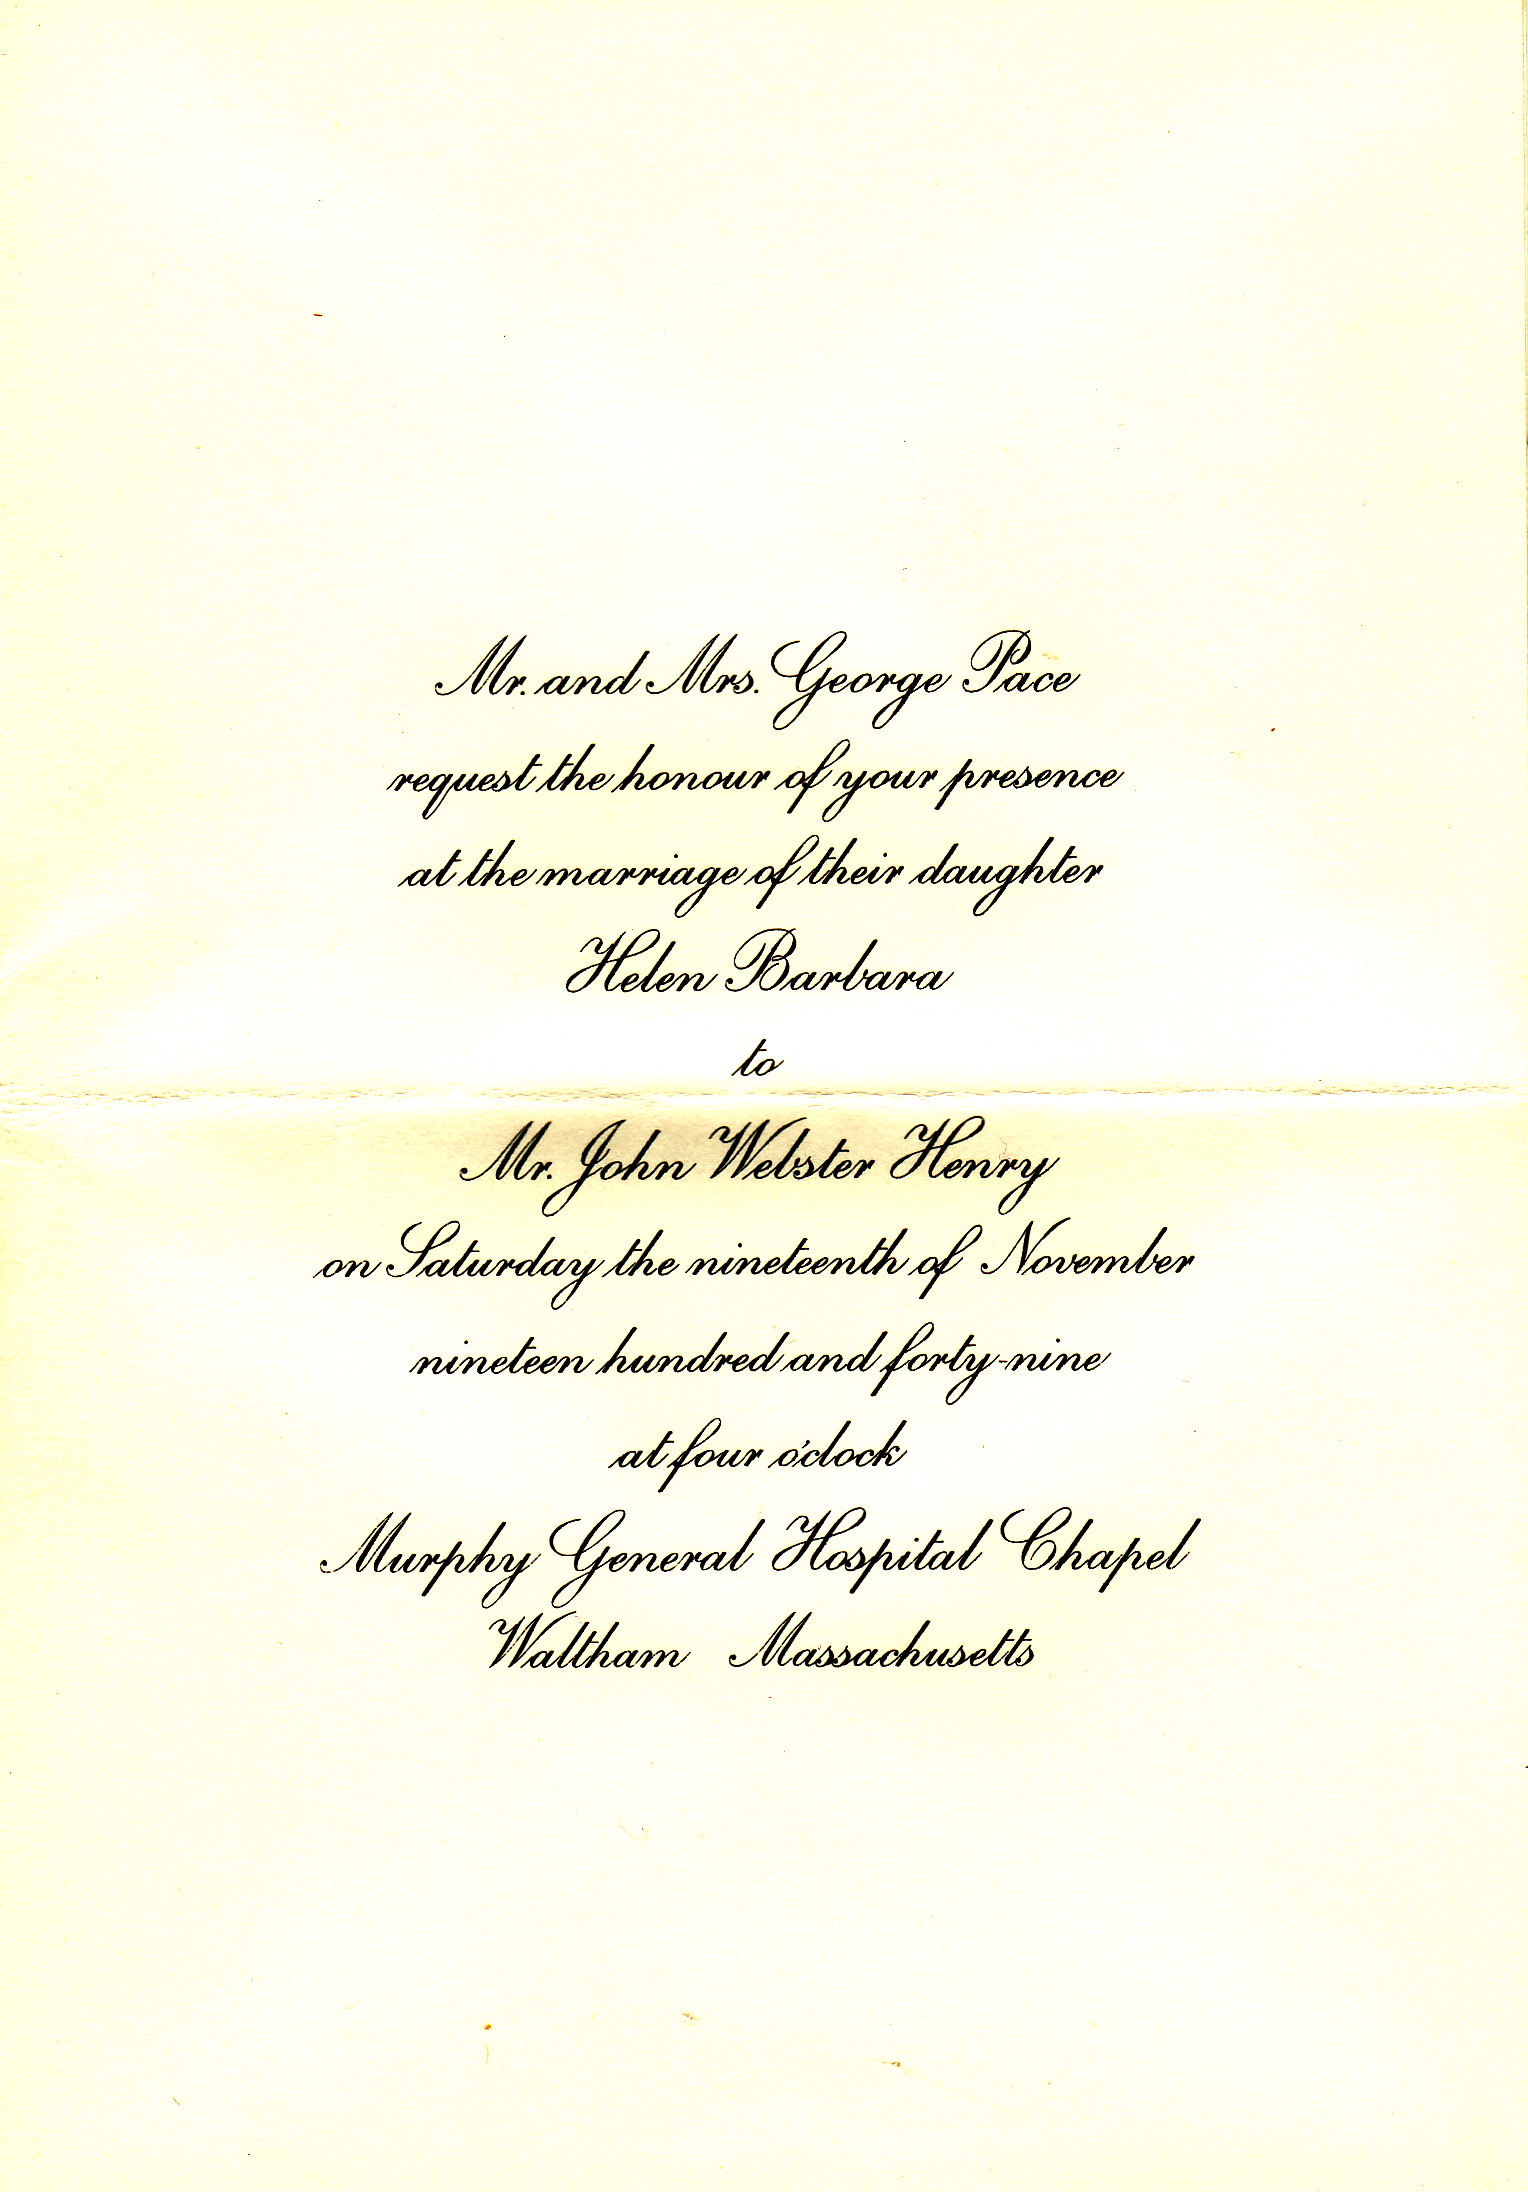 Mr. and Mrs. George Pace
request the honour of your presence
at the marriage of their daughter
Helen Barbara
to
Mr. John Webster Henry
on Saturday the nineteenth of November
nineteen hundred and forty-nine
at four o'clock
Murphy General Hospital Chapel
Waltham Massachusetts